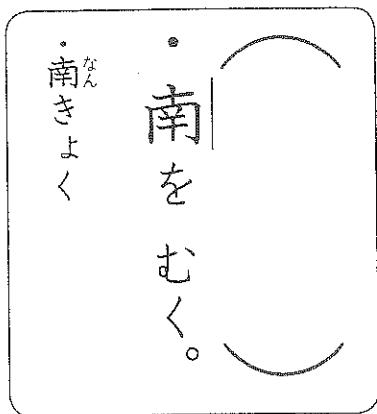 ・南を むく。
・南きょく
なん